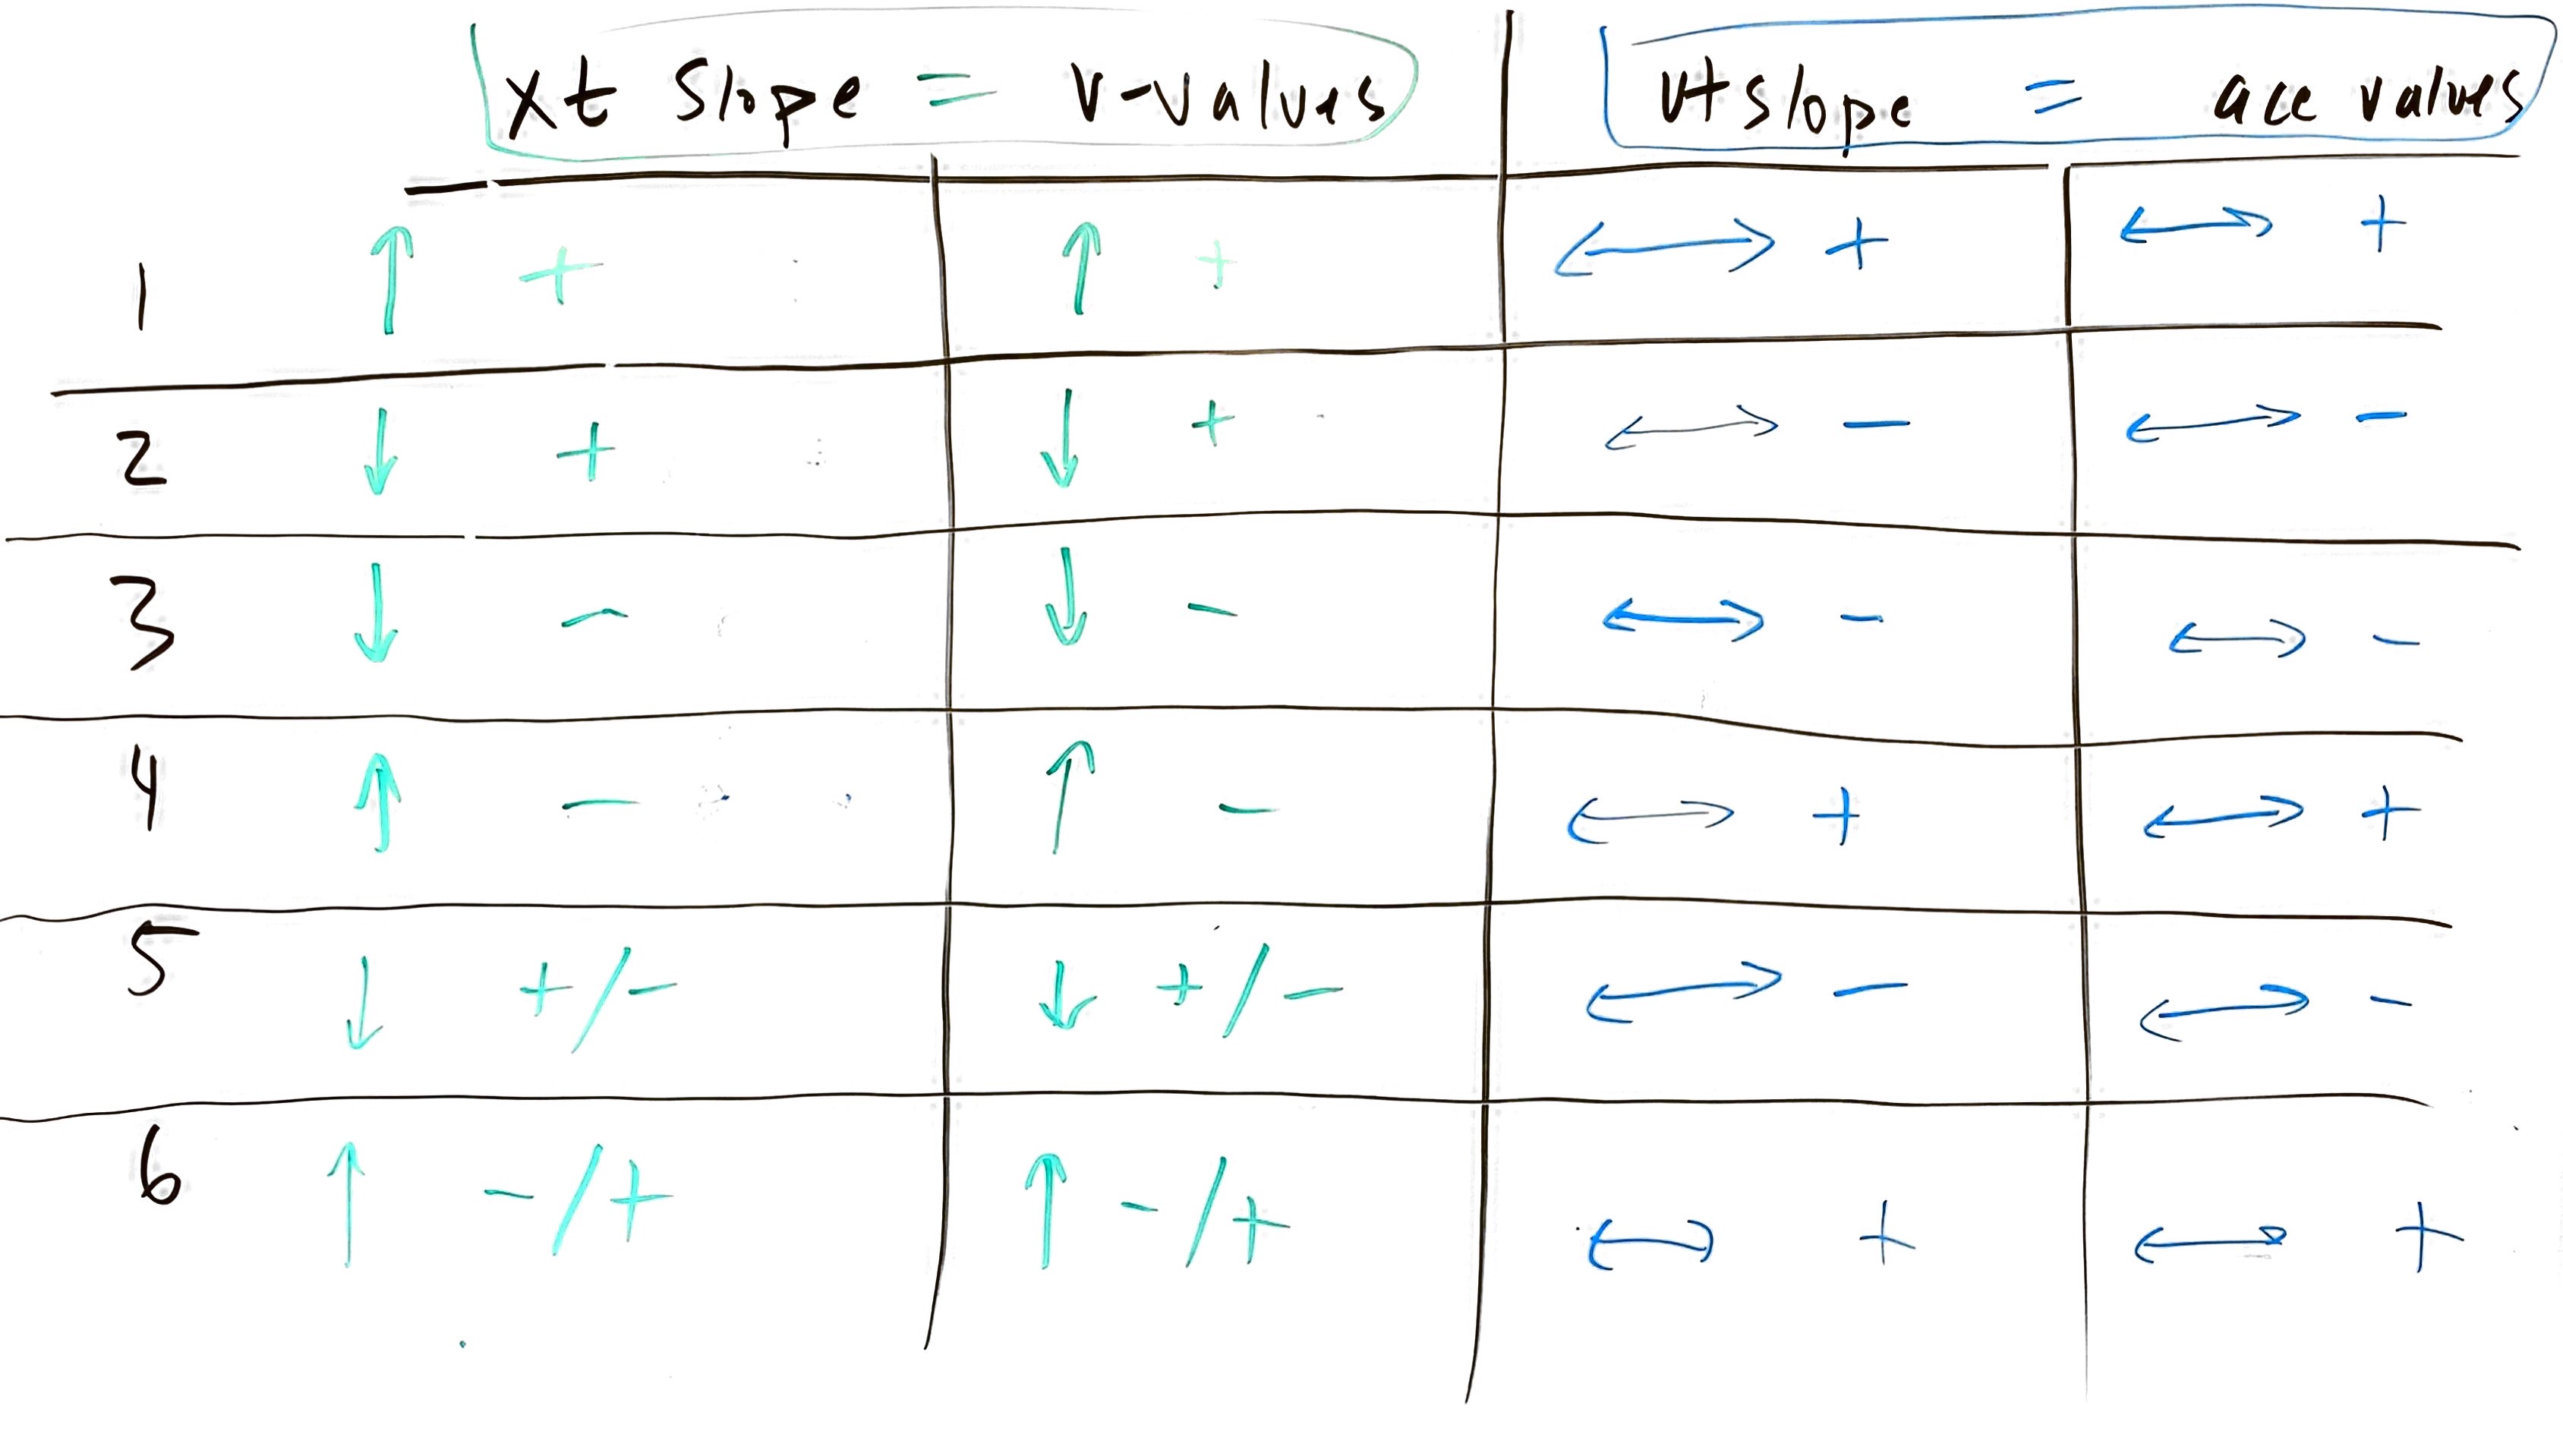 xt slope = v-values vt slope = acc values
1 ↑ + ↑ + ↔ + ↔ +
2 ↓ + ↓ + ↔ - ↔ -
3 ↓ - ↓ - ↔ - ↔ -
4 ↑ - ↑ - ↔ + ↔ +
5 ↓ +/- ↓ +/- ↔ - ↔ -
6 ↑ -/+ ↑ -/+ ↔ + ↔ +